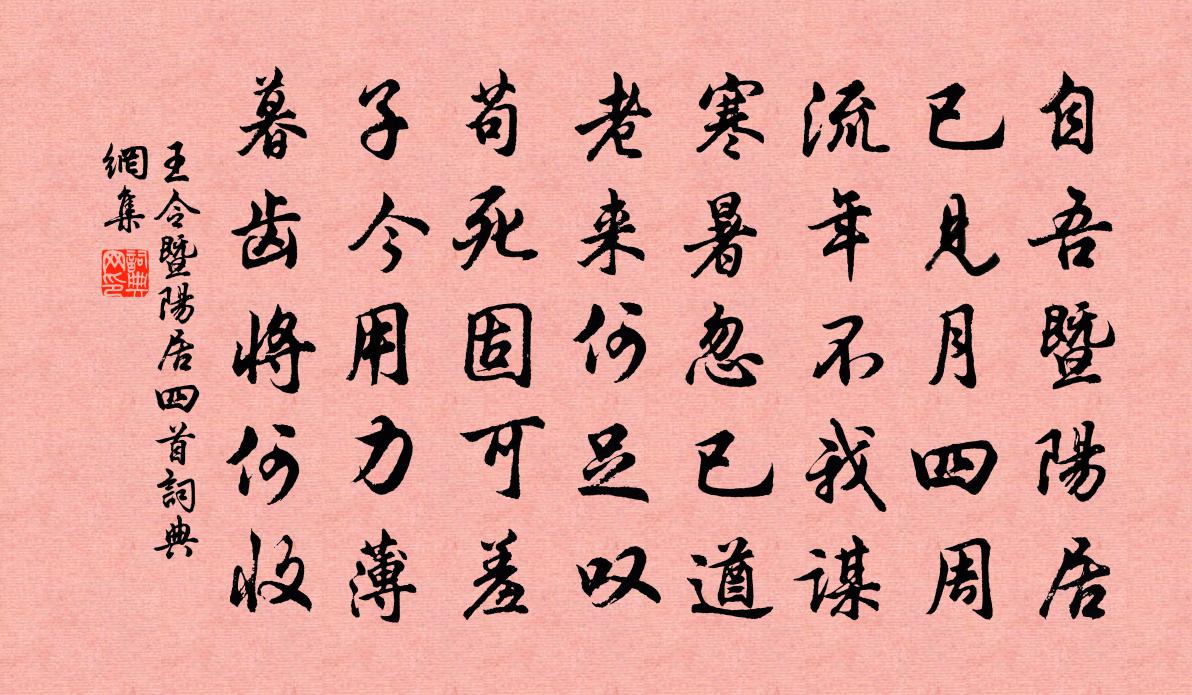 自吾暨陽居
已見月四周
流年不我謀
寒暑忽已遒
老来何足叹
苟死固可羞
子今用力薄
暮齿将何收
王令暨陽居四首詞典
網集
詞典
网印